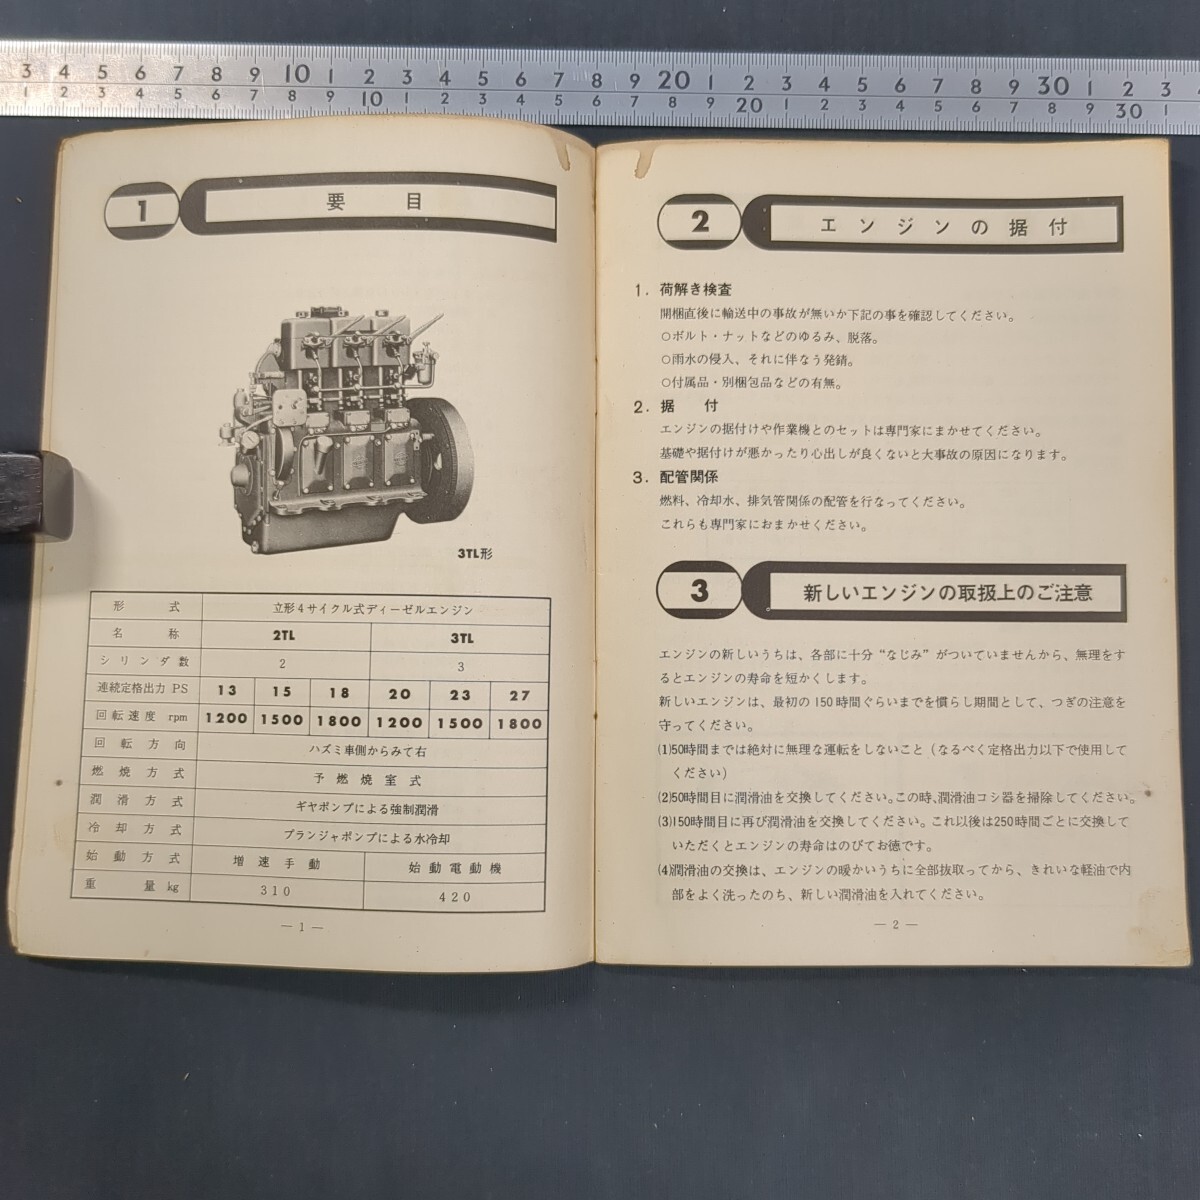 3 4 5 6 7 8 9 10 1 2 3 4 5 6 7 8 9 20 1 2 3 4 5 6 7 8 9 30 1 2 3
1 2 3 4 5 6 7 8 9 10 1 2 3 4 5 6 7 8 9 20 1 2 3 4 5 6 7 8 9 30 1
1 要目
3TL形
形式 立形4サイクル式ディーゼルエンジン
名称 2TL 3TL
シリンダ数 2 3
連続定格出力 PS 13 15 18 20 23 27
回転速度 rpm 1200 1500 1800 1200 1500 1800
回転方向 ハズミ車側からみて右
燃焼方式 予燃焼室式
潤滑方式 ギヤポンプによる強制潤滑
冷却方式 プランジャポンプによる水冷却
始動方式 増速手動 始動電動機
重量 kg 310 420
— 1 —
2 エンジンの据付
1. 荷解き検査
開梱直後に輸送中の事故が無いか下記の事を確認してください。
○ボルト・ナットなどのゆるみ、脱落。
○雨水の侵入、それに伴なう発錆。
○付属品・別梱包品などの有無。
2. 据付
エンジンの据付けや作業機とのセットは専門家にまかせてください。
基礎や据付けが悪かったり心出しが良くないと大事故の原因になります。
3. 配管関係
燃料、冷却水、排気管関係の配管を行なってください。
これらも専門家におまかせください。
3 新しいエンジンの取扱上のご注意
エンジンの新しいうちは、各部に十分“なじみ”がついていませんから、無理をす
るとエンジンの寿命を短かくします。
新しいエンジンは、最初の150時間ぐらいまでを慣らし期間として、つぎの注意を
守ってください。
(1)50時間までは絶対に無理な運転をしないこと（なるべく定格出力以下で使用して
ください）
(2)50時間目に潤滑油を交換してください。この時、潤滑油コシ器を掃除してください。
(3)150時間目に再び潤滑油を交換してください。これ以後は250時間ごとに交換して
いただくとエンジンの寿命はのびてお徳です。
(4)潤滑油の交換は、エンジンの暖かいうちに全部抜取ってから、きれいな軽油で内
部をよく洗ったのち、新しい潤滑油を入れてください。
— 2 —